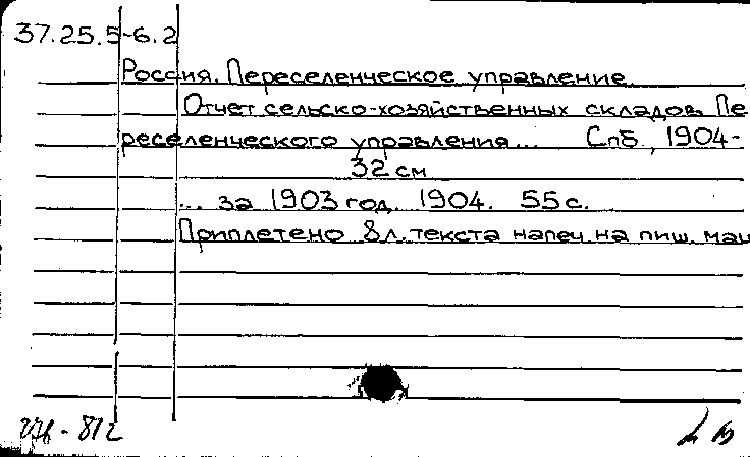 37.25.5-6.2
Россия. Переселенческое управление
Отчет сельско-хозяйственных складов Пе
реселенческого управления... Спб., 1904-
32 см
... за 1903 год. 1904. 55 с.
Приплетено 8 л. текста напеч. на пиш. маш